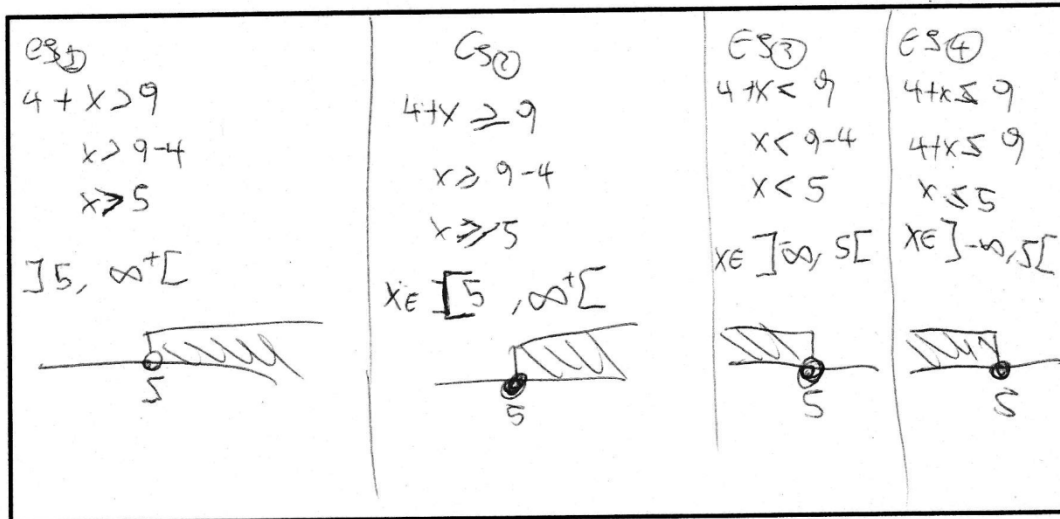 es①
4 + x > 9
x > 9-4
x > 5
]5, ∞⁺[
5
es②
4+x ≥ 9
x ≥ 9-4
x ≥ 5
x∈ [5, ∞⁺[
5
es③
4+x < 9
x < 9-4
x < 5
x∈ ]-∞, 5[
5
es④
4+x ≤ 9
4+x ≤ 9
x ≤ 5
x∈ ]-∞, 5[
5